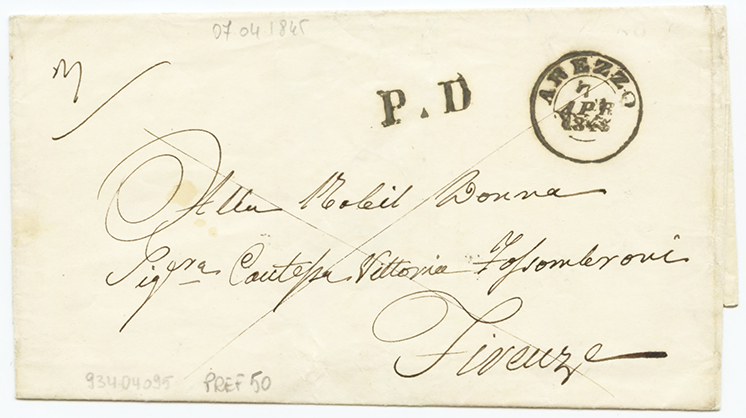 07 04 1845
P. D
AREZZO
7
APR
1845
Alla Nobil Donna
Sig.ra Contessa Vittoria Fossombroni
Firenze
93404095 PREF 50